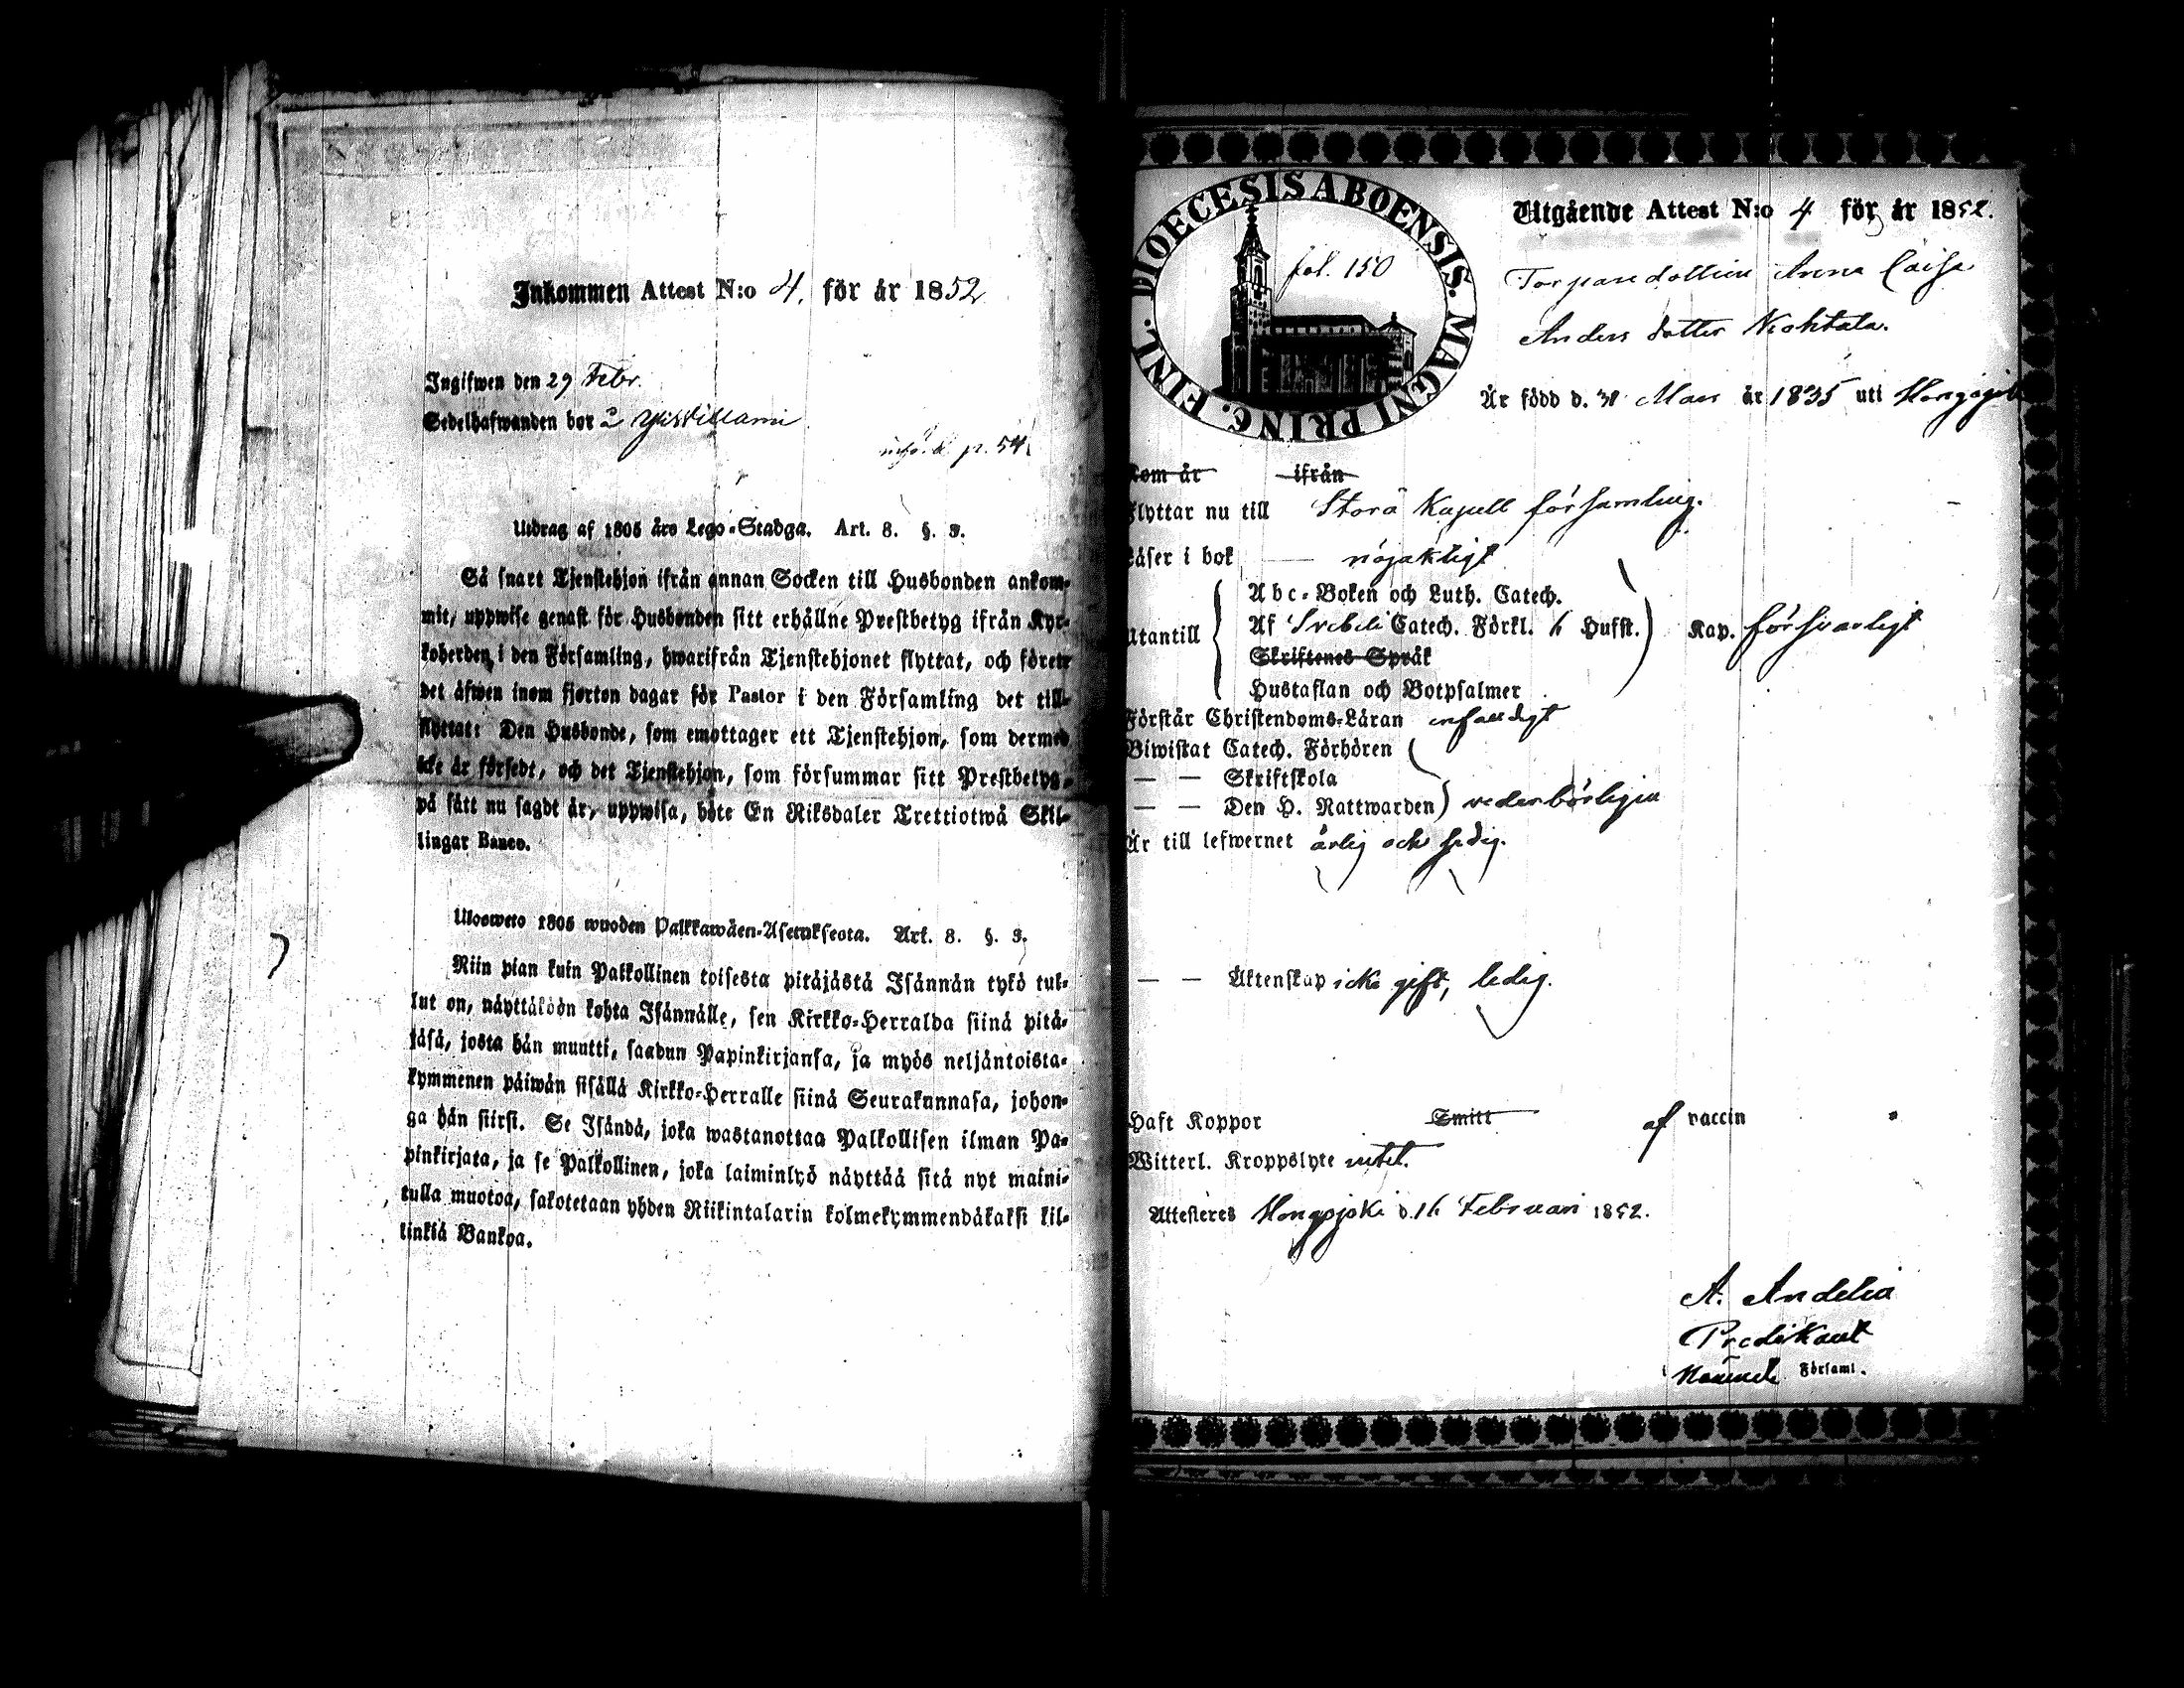 Inkommen Attest N:o 4. för år 1852
Ingifwen den 29 Febr.
Sedelhafwanden bor
införd p. 54
Utdrag af 1805 års Lego-Stadga. Art. 8. §. 3.
Så snart Tjenstehjon ifrån annan Socken till Husbonden ankom-
mit, uppwise genast för Husbonden sitt erhållne Prestbetyg ifrån Kyr-
koherden i den Församling, hwarifrån Tjenstehjonet flyttat, och förete
det äfwen inom fjorton dagar för Pastor i den Församling det till-
flyttat: Den Husbonde, som emottager ett Tjenstehjon, som dermed
icke är försedt, och det Tjenstehjon, som försummar sitt Prestbetyg,
på sätt nu sagdt är, uppwisa, böte En Riksdaler Trettiotwå Skil-
lingar Banco.
Ulosweto 1805 wuoden Palkkawäen-Asetuksesta. Art. 8. §. 3.
Niin pian kuin Palkollinen toisesta pitäjästä Isännän tykö tul-
lut on, näyttäköön kohta Isännälle, sen Kirkko-Herralda siinä pitä-
jäsä, josta hän muutti, saadun Papinkirjansa, ja myös neljäntoista-
kymmenen päiwän sisällä Kirkko-Herralle siinä Seurakunnasa, johon-
ga hän siirsi. Se Isändä, joka wastanottaa Palkollisen ilman Pa-
pinkirjata, ja se Palkollinen, joka laiminlyö näyttää sitä nyt maini-
tulla muotoa, sakotetaan yhden Riikintalarin kolmekymmendäkaksi kil-
linkiä Bankoa.
DIOECESIS ABOENSIS. MAGNI PRINC. FINL.
fol. 150
Utgående Attest N:o 4 för år 1852.
Torpare dottren Anna Caisa
Anders dotter
Är född d. Mars år 1835 uti
Kom år ifrån
Flyttar nu till Storå Kapell församling.
Läser i bok nöjaktigt
Utantill
Abc-Boken och Luth. Catech.
Af Svebelii Catech. Förkl. 6 Hufst. Kap. försvarligt
Skriftenes Språk
Hustaflan och Botpsalmer
Förstår Christendoms-Läran enfaldigt
Biwistat Catech. Förhören
— — Skriftskola
— — Den H. Nattwarden vederbörligen
Är till lefwernet ärlig och sedig.
— — Äktenskap icke gift, ledig.
Haft Koppor Smitt af vaccin
Witterl. Kroppslyte intet.
Attesteres Hongojoki d. 16 Februari 1852.
A. Andelin
Predikant
Församl.